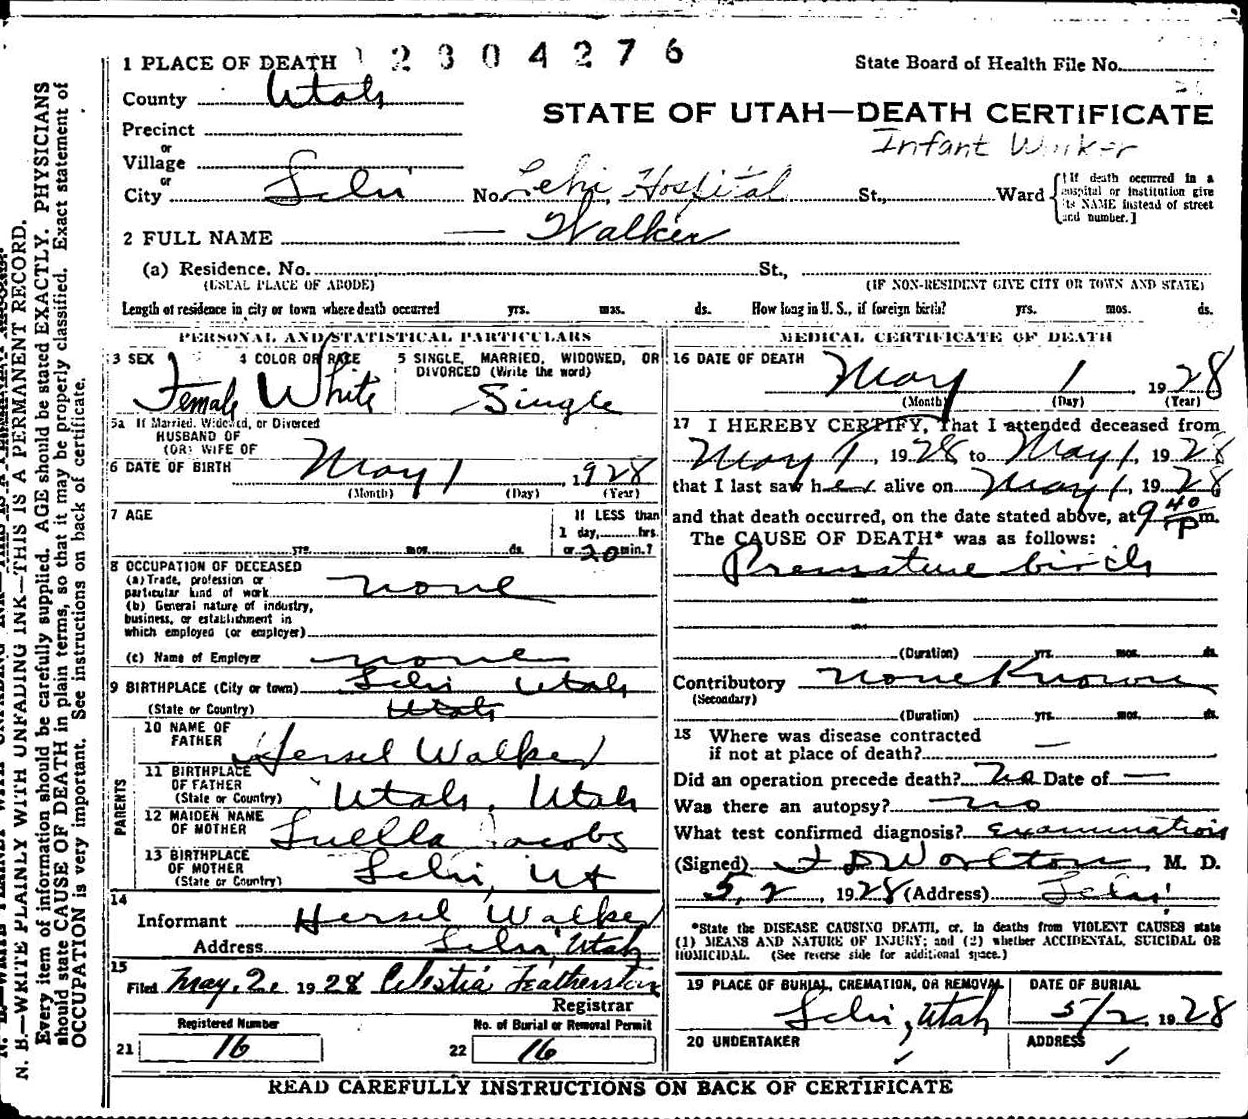 1 PLACE OF DEATH 2304276 State Board of Health File No.
County Utah
STATE OF UTAH—DEATH CERTIFICATE
Precinct
Infant Walker
or
Village
or
City Lehi No. Lehi Hospital St., Ward { [If death occurred in a hospital or institution give its NAME instead of street and number.]
2 FULL NAME — Walker
(a) Residence. No. St.,
(USUAL PLACE OF ABODE) (IF NON-RESIDENT GIVE CITY OR TOWN AND STATE)
Length of residence in city or town where death occurred yrs. mos. ds. How long in U. S., if foreign birth? yrs. mos. ds.
PERSONAL AND STATISTICAL PARTICULARS
3 SEX 4 COLOR OR RACE 5 SINGLE, MARRIED, WIDOWED, OR
DIVORCED (Write the word)
Female White Single
5a If Married, Widowed, or Divorced
HUSBAND OF
(OR) WIFE OF
6 DATE OF BIRTH May 1 1928
(Month) (Day) (Year)
7 AGE If LESS than
1 day, hrs.
yrs. mos. ds. or 20 min.?
8 OCCUPATION OF DECEASED
(a) Trade, profession or
particular kind of work none
(b) General nature of industry,
business, or establishment in
which employed (or employer)
(c) Name of Employer none
9 BIRTHPLACE (City or town) Lehi Utah
(State or Country) Utah
PARENTS
10 NAME OF
FATHER Hersel Walker
11 BIRTHPLACE
OF FATHER
(State or Country) Utah, Utah
12 MAIDEN NAME
OF MOTHER Luella Jacobs
13 BIRTHPLACE
OF MOTHER
(State or Country) Lehi, Ut
14
Informant Hersel Walker
Address Lehi Utah
15
Filed May. 2. 1928 Celestia Featherston
Registrar
Registered Number No. of Burial or Removal Permit
21 16 22 16
MEDICAL CERTIFICATE OF DEATH
16 DATE OF DEATH
May 1, 1928
(Month) (Day) (Year)
17 I HEREBY CERTIFY, That I attended deceased from
May 1, 1928 to May 1, 1928
that I last saw her alive on May 1, 1928
and that death occurred, on the date stated above, at 9 40 P m.
The CAUSE OF DEATH* was as follows:
Premature birth
(Duration) yrs. mos. ds.
Contributory none Known
(Secondary)
(Duration) yrs. mos. ds.
18 Where was disease contracted
if not at place of death? —
Did an operation precede death? No Date of —
Was there an autopsy? no
What test confirmed diagnosis? examination
(Signed) F D Worlton, M. D.
5, 2, 1928 (Address) Lehi
*State the DISEASE CAUSING DEATH, or, in deaths from VIOLENT CAUSES state
(1) MEANS AND NATURE OF INJURY; and (2) whether ACCIDENTAL, SUICIDAL OR
HOMICIDAL. (See reverse side for additional space.)
19 PLACE OF BURIAL, CREMATION, OR REMOVAL DATE OF BURIAL
Lehi, Utah 5/2 1928
20 UNDERTAKER ADDRESS
READ CAREFULLY INSTRUCTIONS ON BACK OF CERTIFICATE
N. B.—WRITE PLAINLY WITH UNFADING INK—THIS IS A PERMANENT RECORD.
Every item of information should be carefully supplied. AGE should be stated EXACTLY. PHYSICIANS
should state CAUSE OF DEATH in plain terms, so that it may be properly classified. Exact statement of
OCCUPATION is very important. See instructions on back of certificate.